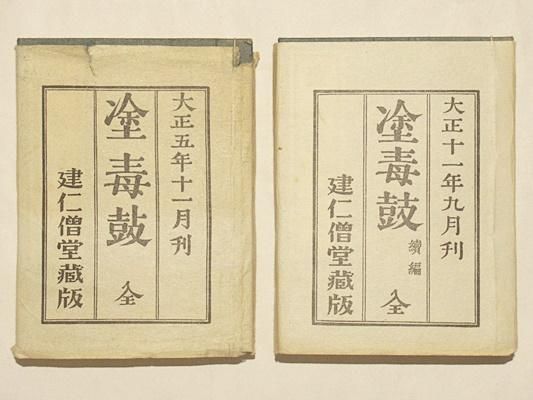 大正五年十一月刊
塗毒鼓 全
建仁僧堂藏版
大正十一年九月刊
塗毒鼓 續編 全
建仁僧堂藏版